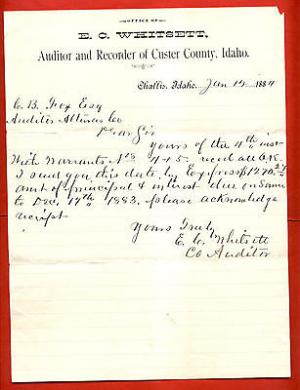 OFFICE OF
E. C. WHITSETT,
Auditor and Recorder of Custer County, Idaho.
Challis, Idaho, Jan 14 1884
C. B. Fox Esq
Auditor Alturas Co
Dear Sir
yours of the 4th inst
With Warrants Nos 4-15. recd all O.K.
I send you this date by Express $1270.
amt of principal & interest due on Same
to Dec. 17th 1883. please acknowledge
reciept
Yours Truly
E. C. Whitsett
Co Auditor